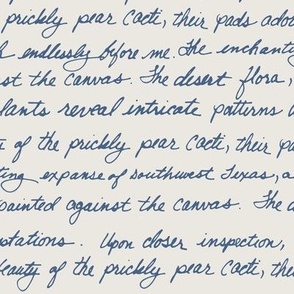 prickly pear cacti, their pads ado
endlessly before me. The enchanti
st the canvas. The desert flora,
lants reveal intricate patterns
of the prickly pear cacti, their pa
ting expanse of southwest Texas, a
painted against the canvas. The d
ptations. Upon closer inspection,
beauty of the prickly pear cacti, thei